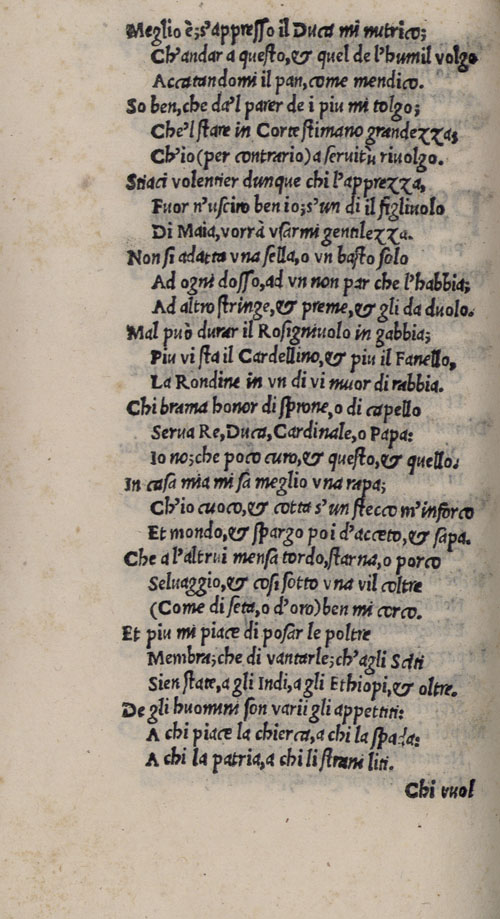 Meglio è; s'appresso il Duca mi nutrico;
Ch'andar a questo, & quel de l'humil volgo
Accatandomi il pan, come mendico.
So ben, che da'l parer de i piu mi tolgo;
Che'l stare in Corte stimano grandezza,
Ch'io (per contrario) a seruitù riuolgo.
Stiaci volentier dunque chi l'apprezza,
Fuor n'uscirò ben io; s'un di il figliuolo
Di Maia, vorrà vsarmi gentilezza.
Non si adatta vna sella, o vn basto solo
Ad ogni dosso, ad vn non par che l'habbia;
Ad altro stringe, & preme, & gli da duolo.
Mal può durar il Rosignuolo in gabbia;
Piu vi sta il Cardellino, & piu il Fanello,
La Rondine in vn di vi muor di rabbia.
Chi brama honor di sprone, o di capello
Serua Re, Duca, Cardinale, o Papa:
Io no; che poco curo, & questo, & quello.
In casa mia mi sa meglio vna rapa;
Ch'io cuoco, & cotta s'un stecco m'inforco
Et mondo, & spargo poi d'acceto, & sapa.
Che a l'altrui mensa tordo, starna, o porco
Seluaggio, & cosi sotto vna vil coltre
(Come di seta, o d'oro) ben mi corco.
Et piu mi piace di posar le poltre
Membra; che di vantarle; ch'agli Sciti
Sien state, a gli Indi, a gli Ethiopi, & oltre.
De gli huomini son varii gli appetiti:
A chi piace la chierca, a chi la spada:
A chi la patria, a chi li strani liti.
Chi vuol